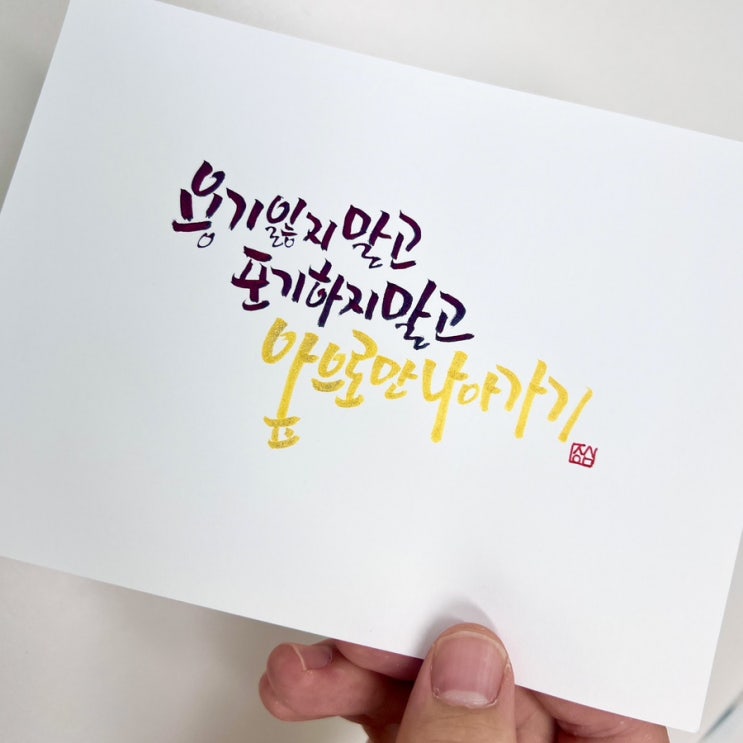 용기잃지말고
포기하지말고
앞으로만나아가기
중심